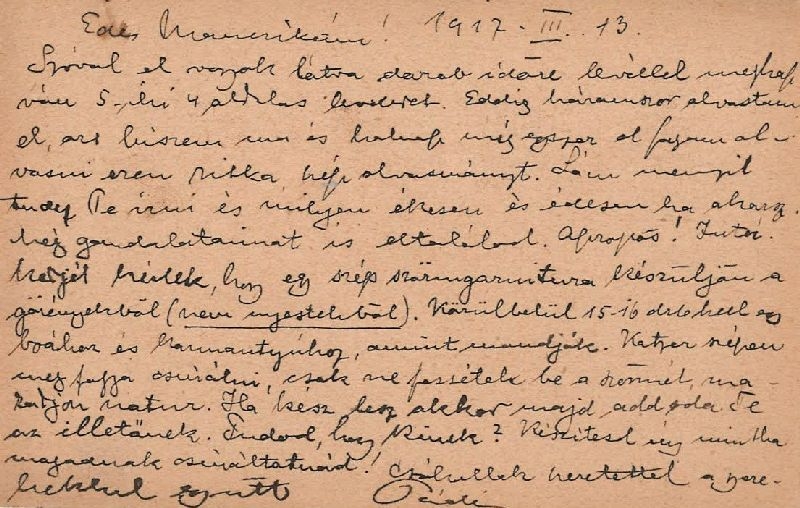 Édes Mamcsikám! 1917. III. 13.
Szóval el vagyok látva darab időre levéllel megkap
ván 5-iki 4 oldalas leveledet. Eddig háromszor olvastam
el, azt hiszem ma és holnap még egyszer el fogom ol-
vasni ezen ritka szép olvasmányt. Lám mennyit
tudsz Te írni és milyen ékesen és édesen ha akarsz.
még gondolataimat is eltalálod. Apropos!
kérlek, hogy egy szép szőrmegarnitura készüljön a
görényekből (nem nyestekből). Körülbelül 15-16 drb kell egy
boához és karmantyúhoz, amint mondják. Katzer szépen
meg fogja csinálni, csak ne fessétek be a szőrmét, ma-
radjon natur. Ha kész lesz akkor majd add oda Te
az illetőnek. Tudod, hogy kinek? Készítesd úgy mintha
magadnak csináltatnád! Csókollak szeretettel a gyere-
kekkel együtt